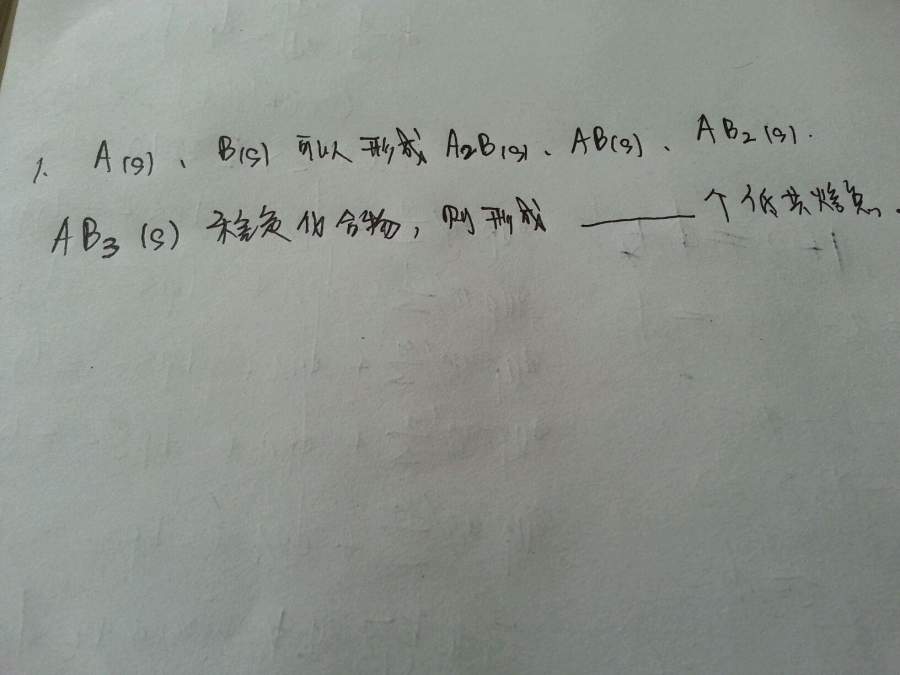 1. A(s)、B(s) 可以形成 A₂B(s)、AB(s)、AB₂(s).
AB₃(s) 稳定化合物, 则形成 ______ 个低共熔点.